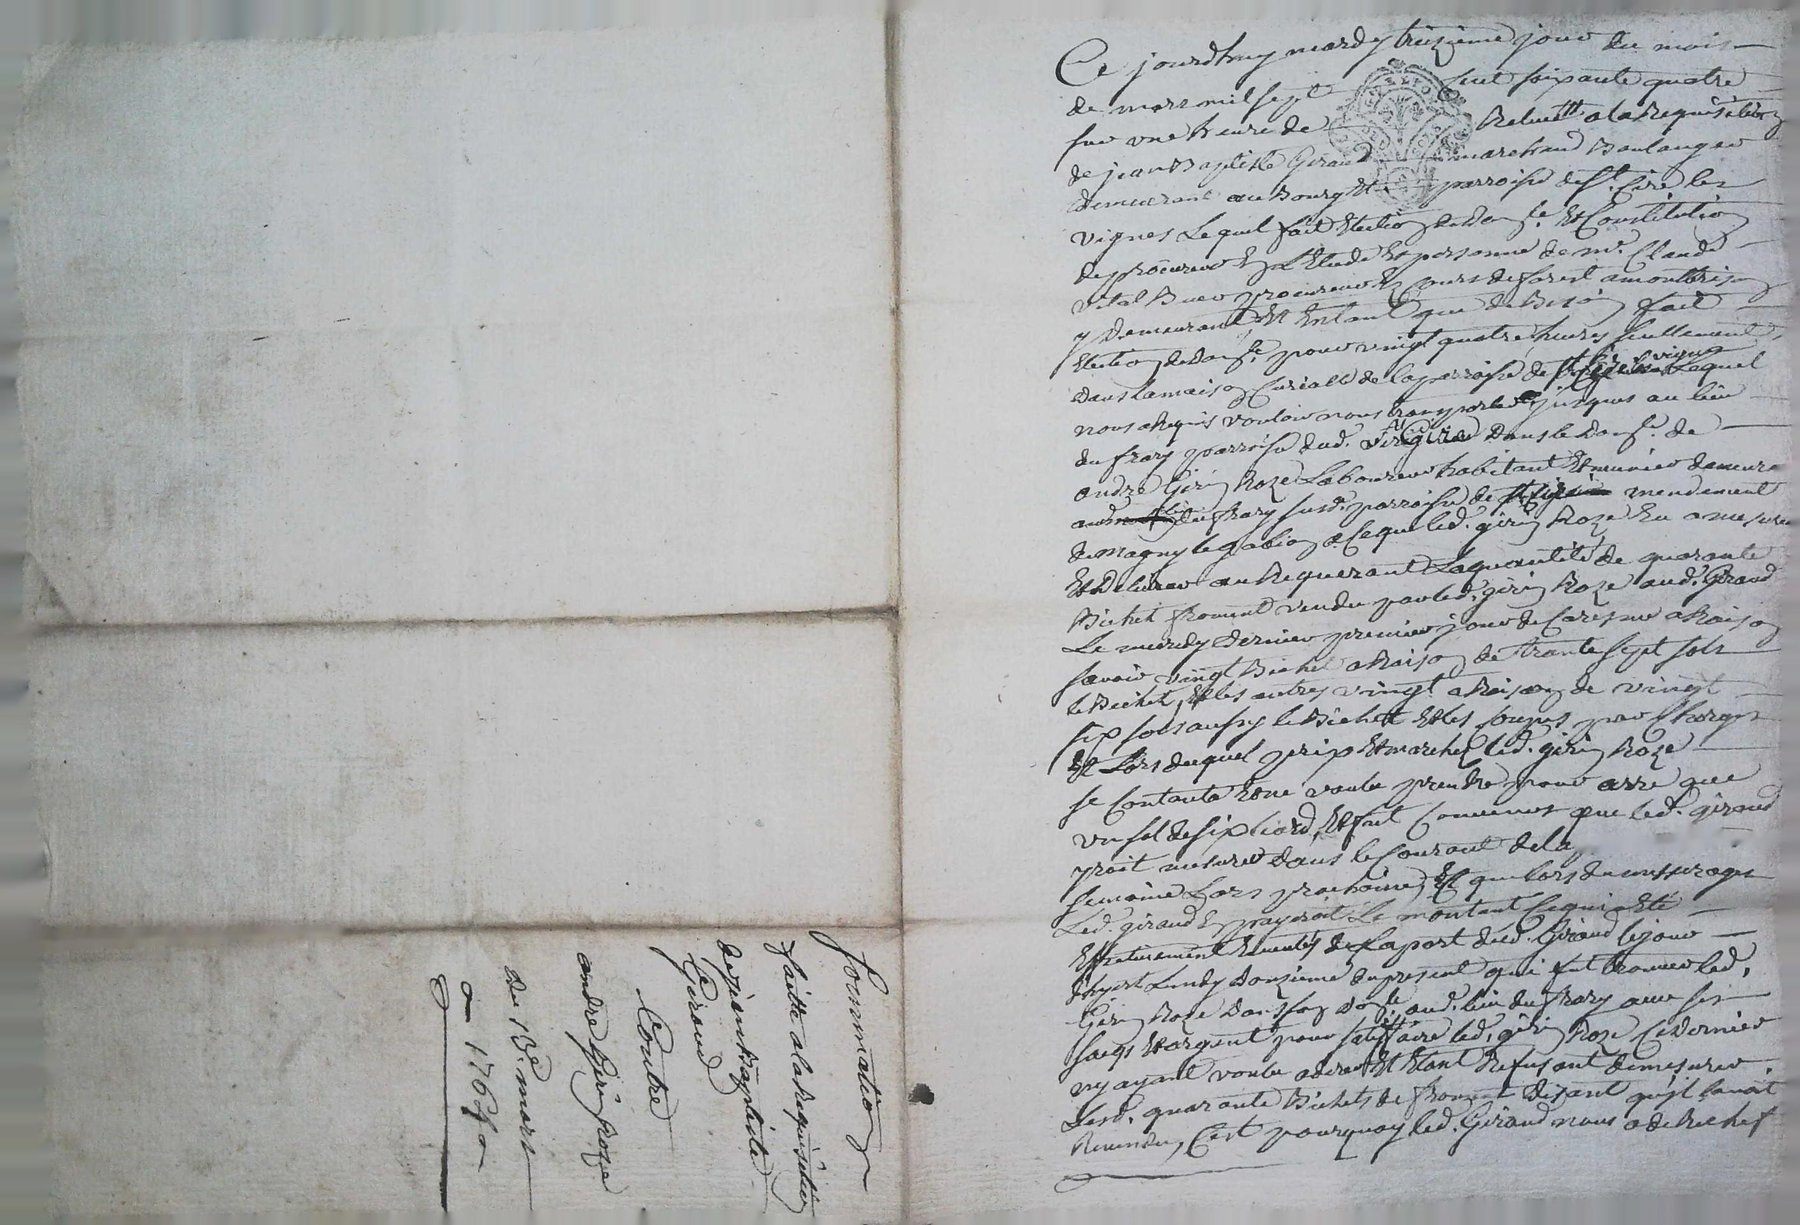 Ce jourdhuy mardy treizieme jour du mois
de mars mil sept cent soixante quatre
sur une heure de Relevée a la Requisition
de jean Baptiste Giraud marchand Boulanger
demeurant au Bourg Et parroisse de St. Cire les
vignes Lequel fait Election de Domle. Et Constitution
de procureur En L'Etude Et personne de me. Claude
vital Buer procureur Es Cours de forest a montbrison
y demeurant, Et Entant que de Besoin fait
Election de Domle. pour vingt quatre heures seullement
dans la maison Curialle de la parroisse de St Cire les vignes Lequel
nous a Requis vouloir nous transporter jusques au lieu
du frary parroisse dud. St Cire Dans le Domle. de
andré Girin Roze Laboureur habitant Et munier demeurant
du frary susd. parroisse de mendement
de magny le gabion a Ceque led. girin Roze Eu a mesurer
Et Delivrer au Requerant La quantité de quarante
Bichet froment vendu par led. girin Roze aud. Giraud
Le mecredy dernier premier jour de Caresme a Raison
savoir vingt Bichet a Raison de trante sept sols
le Bichet, Et les autres vingt a Raison de vingt
six sols aussy le Bichet Et les par Charges
Et Lors duquel prix Et marché led. girin Roze
se Contanta Et ne voulu prendre pour arre que
un sol de six liard, Et fut Convenus que led. giraud
yroit mesurer dans le Courant de la
semaine Lors prochaine, Et que lors du mesurages
Led. giraud En payeroit Le montant Ce qui a Eté
Effectivement Executés de La part dud. Giraud le jour
d'hyert Lundy Douzieme du present qui fut trouver led.
Girin Roze Dans son Domle. aud. lieu du frary avec ses
sacqs Et argent pour satisfaire led. girin Roze Ce Dernier
ny ayant voulu aderer Et Etant Refusant de mesurer
Lesd. quarante Bichets de froment disant qu'il l'avoit
Revendu, C'est pourquoy led. Giraud nous a de Rechef
Sommation
faitte a la Requisition
de jean Baptiste
Giraud
Contre
andré Girin Roze
du 13e. mars
1764